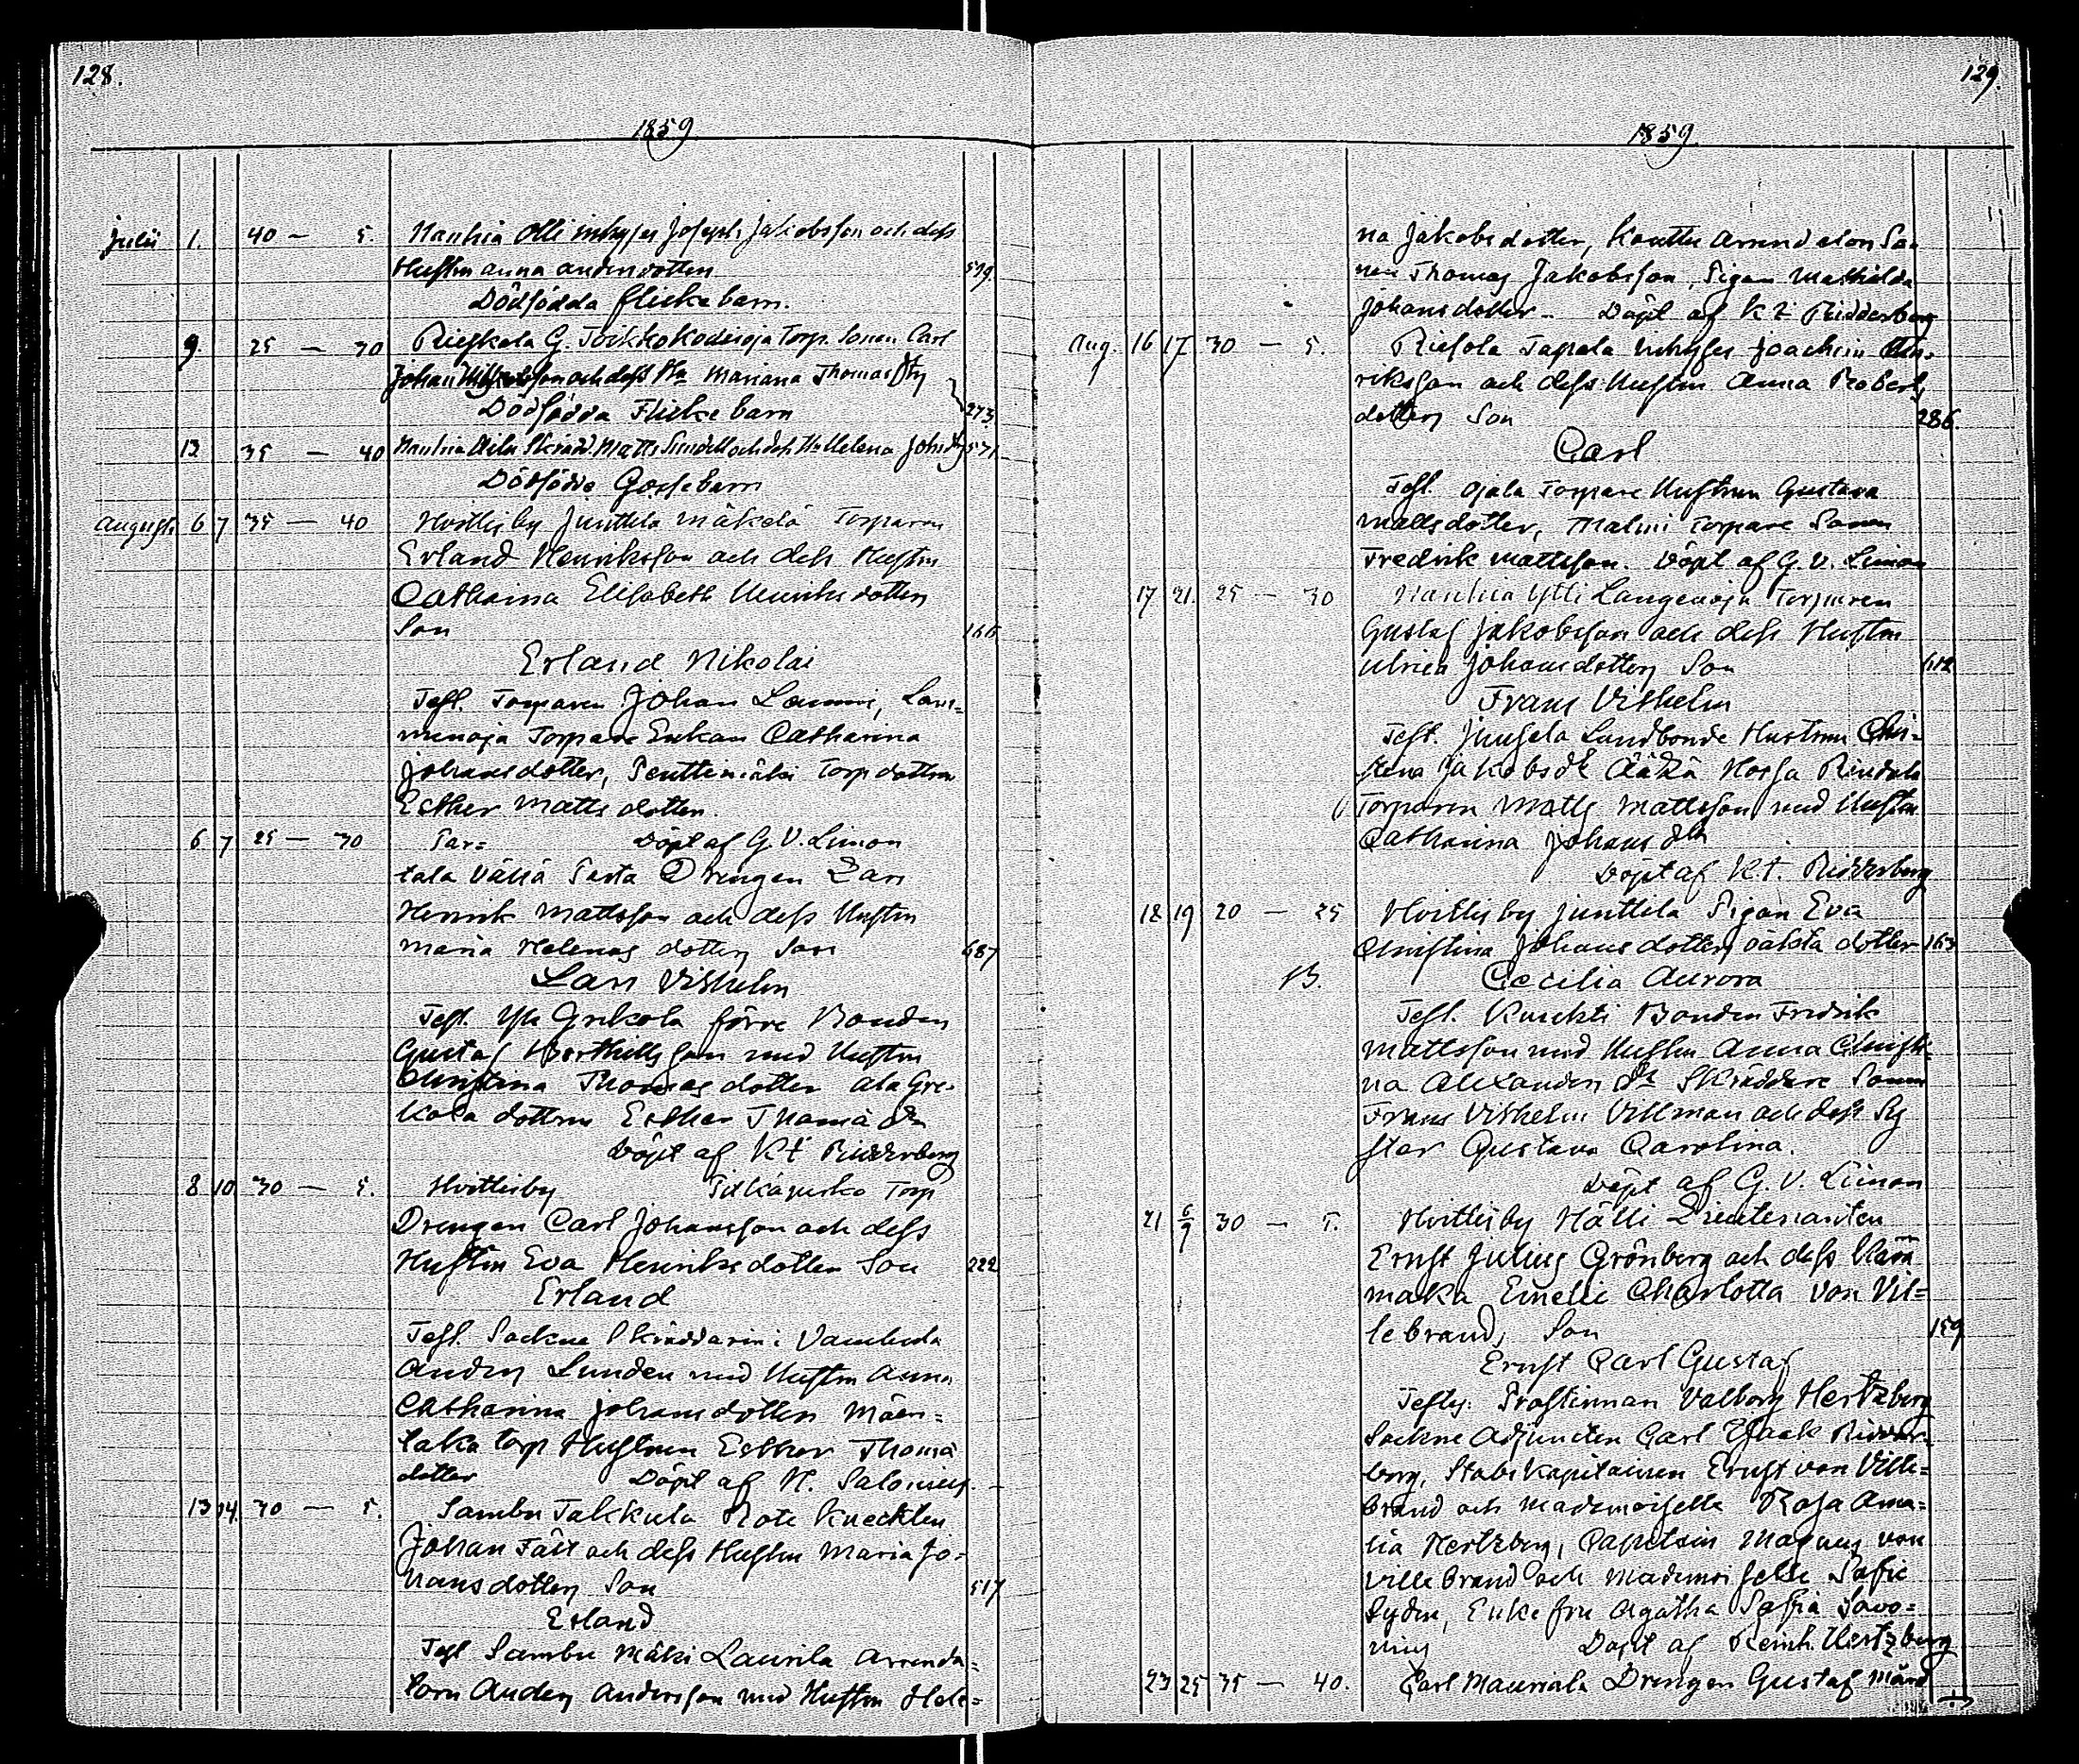 128.
1859
Julii 1. 40 — 5. Nanhia Olli inhyses Joseph Jakobsson och dess
Hustru Anna Andersdotters 579.
Dödfödda flickebarn.
9. 25 — 30 Rieskala G. Torp. Sonen Carl
Johan och dess Hu Mariana Thomas
Dödfödda Flickebarn 273
12 35 — 40 Nanhia Skrädd. Matts och dess Hu Helena Johs 571
Dödfödde Gossebarn
Augusti 6 7 35 — 40 Hvittisby Junttila Mäkelä Torparen
Erland Henriksson och dess Hustru
Catharina Elisabeth Henriksdotters
Son
Erland Nikolai
Test. Torparen Johan Lammi, Lam=
minoja Torpare Enkan Catharina
Johansdotter, Penttimäki Torp dottren
Esther Matts dotter.
6 7 25 — 30 Sar= Döpt af G. V. Limon
tala Vähä Pasta Drengen Lars
Henrik Mattsson och dess Hustru
Maria Helenas dotters Son 687
Lars Vilhelm
Test. Yli Grekola förre Bonden
Gustaf Berthillsson med Hustru
Christina Thomas dotter Ala Gre=
kola dottren Esther Thomä dr
Döpt af Kt Ridderberg
8 10 30 — 5. Hvittisby Torp
Drengen Carl Johansson och dess
Hustru Eva Henriksdotters Son 222
Erland
Test. Sockne Skräddarin i Vambula
Anders Lunden med Hustru Anna
Catharina Johansdotter Mäen=
taka torp Hustrun Esther Thomä
dotter Döpt af N. Salonius.
13 14. 30 — 5. Sambu Takkula Rote Knechten
Johan Fält och dess Hustru Maria Jo=
hansdotters Son 517
Erland
Test Sambu Mäki Laurila Arrenda=
torn Anders Andersson med Hustru Hele=
129.
1859.
na Jakobsdotter, Kouttu Arrendators So=
nen Thomas Jakobsson, Pigan Mathilda
Johansdotter. Döpt af Kt Ridderberg
Aug. 16 17 30 — 5. Riesola Tapala inhyses Joachim Hen=
riksson och dess Hustru Anna Roberts
dotters Son 286.
Carl
Test. Ojala Torpare Hustrun Gustava
Mattsdotter, Malmi Torpare Sonen
Fredrik Mattsson. Döpt af G. V. Limon
17 21. 25 — 30 Nanhia Ylli Langenoja Torparen
Gustaf Jakobsson och dess Hustru
Ulrica Johansdotters Son 612
Frans Vilhelm
Test. Juusela Landbonde Hustrun Chri=
stina Jakobsdr
Torparen Matts Mattsson med Hustru
Catharina Johans dtr
Döpt af Kt. Ridderberg
18 19 20 — 25 Hvittisby Junttila Pigan Eva
Christina Johansdotters oäkta dotter 163
B. Cecilia Aurora
Test. Knuhti Bonden Fredrik
Mattsson med Hustru Anna Christi=
na Alexanders dr Skräddare Sonen
Frans Vilhelm Villman och dess Sy
ster Gustava Carolina.
Döpt af G. V. Limon
21 6/9 30 — 5. Hvittisby Hälli Lieutenanten
Ernst Julius Grönberg och dess Kära
maka Emelie Charlotta von Vil=
lebrand, Son 159
Ernst Carl Gustaf
Testes: Prostinnan Valborg Hertzberg
Sockne Adjuncten Carl Isaak Ridder=
berg, Stabs Kapitainen Ernst von Ville=
brand och Mademoiselle Rosa Ama=
lia Hertzberg, Capitain Magnus von
Villebrand och Mademoiselle Sofie
Enkefru Agatha Sofia Savo=
nius Döpt af Reinh. Hertzberg
23 25 35 — 40. Drengen Gustaf